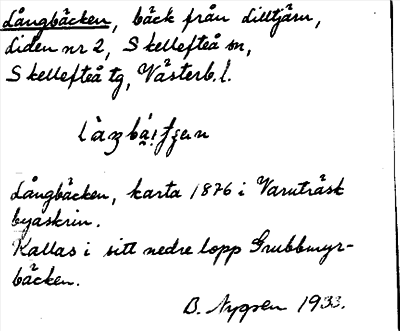 Långbäcken, bäck från Lilltjärn,
Liden nr 2, Skellefteå sn,
Skellefteå tg, Västerb. l.
Långbäcken, karta 1876 i Varuträsk
byaskrin.
Kallas i sitt nedre lopp Grubbmyr-
bäcken.
B. Nygren 1933.